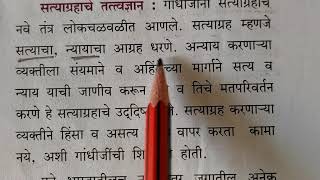 सत्याग्रहाचे तत्त्वज्ञान : गांधीजींनी सत्याग्रहाचे
नवे तंत्र लोकचळवळीत आणले. सत्याग्रह म्हणजे
सत्याचा, न्यायाचा आग्रह धरणे. अन्याय करणाऱ्या
व्यक्तीला संयमाने व मार्गाने सत्य व
न्याय याची जाणीव करून व तिचे मतपरिवर्तन
करणे हे सत्याग्रहाचे सत्याग्रह करणाऱ्या
व्यक्तीने हिंसा व असत्य वापर करता कामा
नये. अशी गांधीजींची होती.
जगातील अनेक